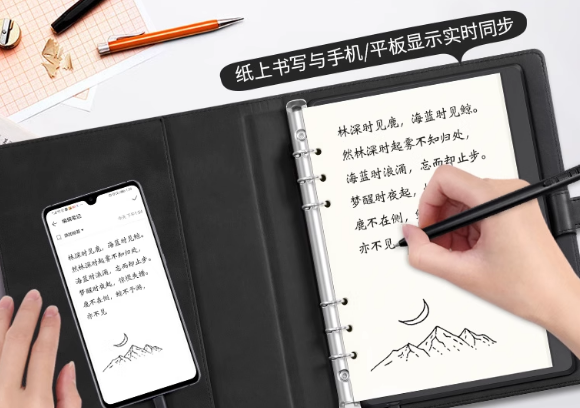 纸上书写与手机/平板显示实时同步
林深时见鹿，海蓝时见鲸。
然林深时起雾不知归处，
海蓝时浪涌，忘而却止步。
梦醒时夜起，
鹿不在侧，
亦不见
编辑笔记
林深时见鹿，海蓝时见鲸。
然林深时起雾不知归处，
海蓝时浪涌，忘而却止步。
梦醒时夜起，
鹿不在侧，鲸不予游，
亦不见